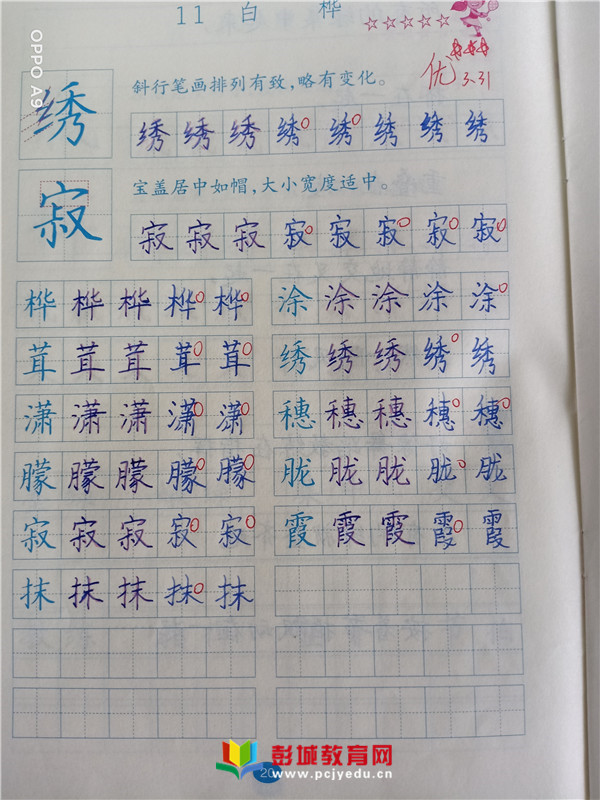 11 白 桦
优 3.31
斜行笔画排列有致，略有变化。
绣
绣 绣 绣 绣 绣 绣 绣 绣
宝盖居中如帽，大小宽度适中。
寂
寂 寂 寂 寂 寂 寂 寂 寂
桦 桦 桦 桦 桦 涂 涂 涂 涂 涂
茸 茸 茸 茸 茸 绣 绣 绣 绣 绣
潇 潇 潇 潇 潇 穗 穗 穗 穗 穗
朦 朦 朦 朦 朦 胧 胧 胧 胧 胧
寂 寂 寂 寂 寂 霞 霞 霞 霞 霞
抹 抹 抹 抹 抹
彭城教育网
20
www.pcjyedu.cn
OPPO A9